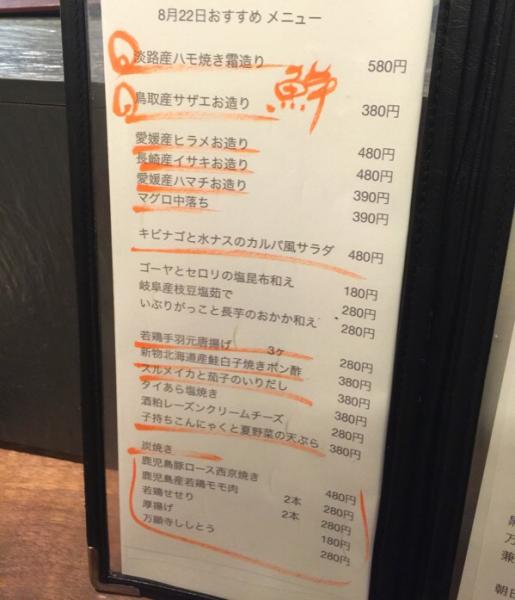 8月22日おすすめ メニュー
淡路産ハモ焼き霜造り 580円
鮮
鳥取産サザエお造り 380円
愛媛産ヒラメお造り 480円
長崎産イサキお造り 480円
愛媛産ハマチお造り 390円
マグロ中落ち 390円
キビナゴと水ナスのカルパ風サラダ 480円
ゴーヤとセロリの塩昆布和え 180円
岐阜産枝豆塩茹で 280円
いぶりがっこと長芋のおかか和え 280円
若鶏手羽元唐揚げ 3ヶ 280円
新物北海道産鮭白子焼きポン酢 380円
スルメイカと茄子のいりだし 380円
タイあら塩焼き 380円
酒粕レーズンクリームチーズ 280円
子持ちこんにゃくと夏野菜の天ぷら 380円
炭焼き
鹿児島豚ロース西京焼き 480円
鹿児島産若鶏モモ肉 2本 280円
若鶏せせり 2本 280円
厚揚げ 180円
万願寺ししとう 280円
万
兼
朝日